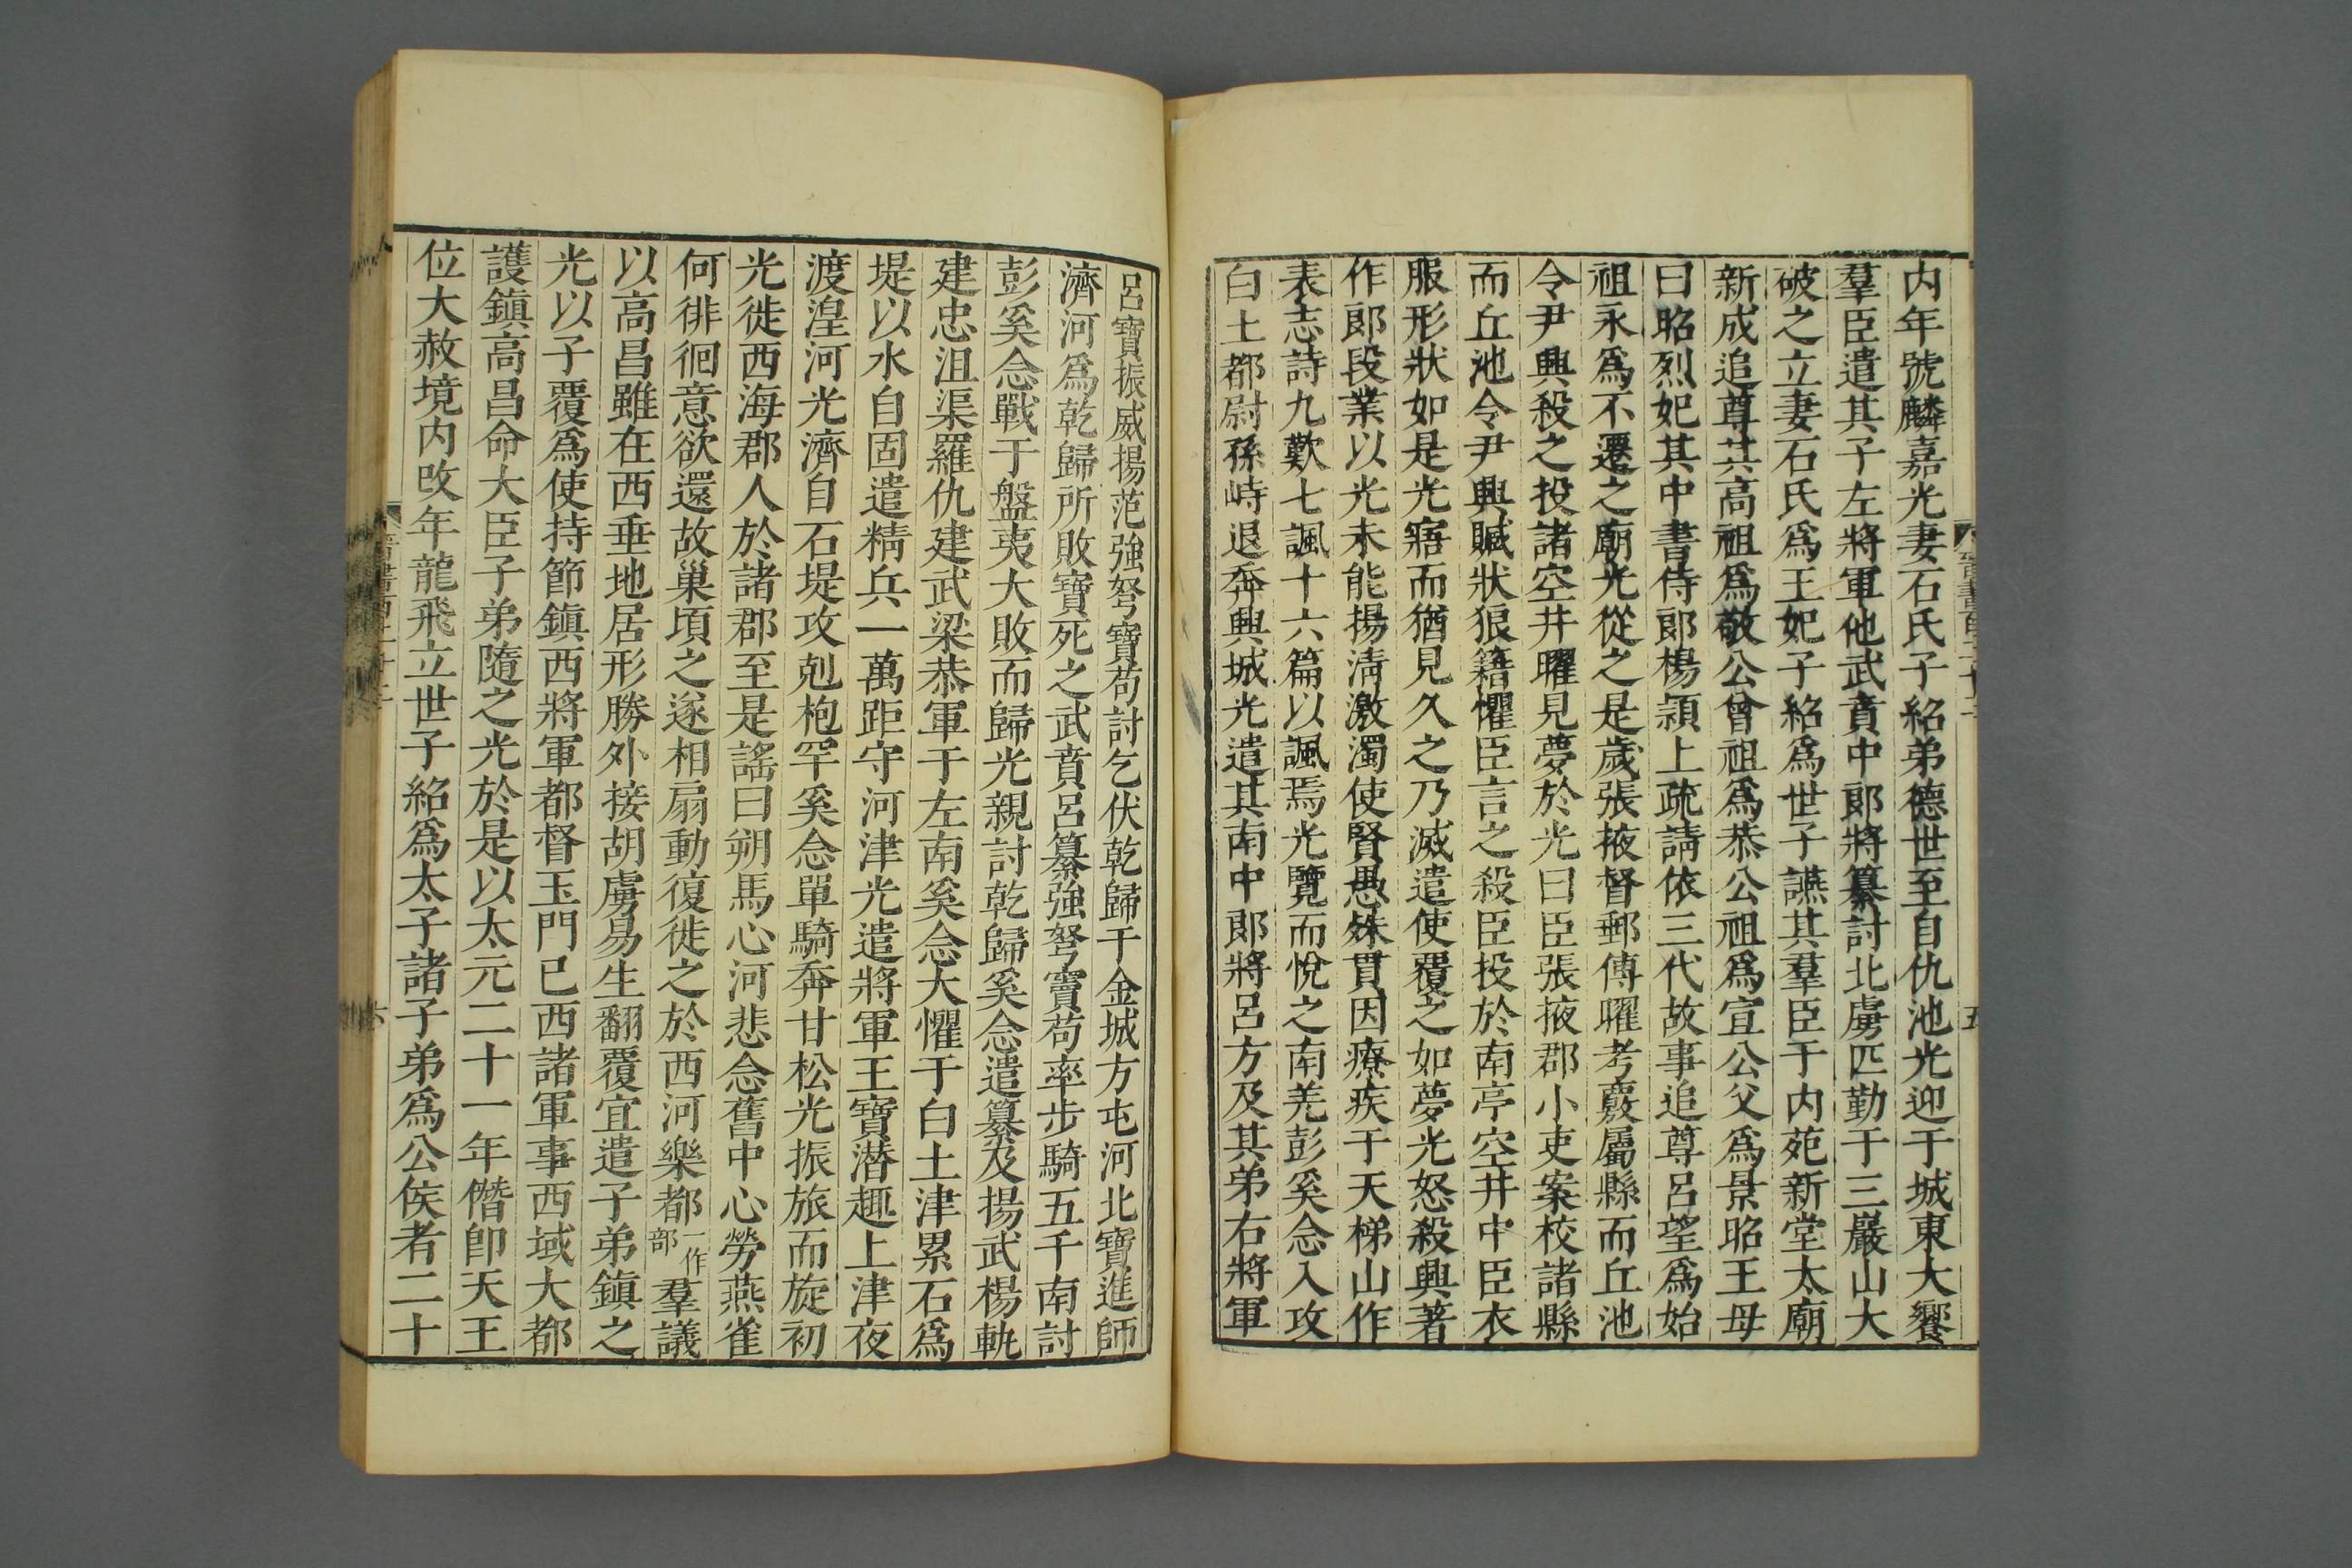 内年號麟嘉光妻石氏子紹弟德世至自仇池光迎于城東大饗
羣臣遣其子左將軍他武賁中郎將纂討北虜匹勤于三巖山大
破之立妻石氏爲王妃子紹爲世子讌其羣臣于内苑新堂太廟
新成追尊其高祖爲敬公曾祖爲恭公祖爲宣公父爲景昭王母
曰昭烈妃其中書侍郎楊頴上疏請依三代故事追尊呂望爲始
祖永爲不遷之廟光從之是歲張掖督郵傅曜考覈屬縣而丘池
令尹興殺之投諸空井曜見夢於光曰臣張掖郡小吏案校諸縣
而丘池令尹興贓狀狼籍懼臣言之殺臣投於南亭空井中臣衣
服形狀如是光寤而猶見久之乃滅遣使覆之如夢光怒殺興著
作郎段業以光未能揚清激濁使賢愚殊貫因療疾于天梯山作
表志詩九歎七諷十六篇以諷焉光覽而悅之南羌彭奚念入攻
白土都尉孫峙退奔興城光遣其南中郎將呂方及其弟右將軍
呂寶振威揚范強弩寶苟討乞伏乾歸于金城方屯河北寶進師
濟河爲乾歸所敗寶死之武賁呂纂強弩竇苟率步騎五千南討
彭奚念戰于盤夷大敗而歸光親討乾歸奚念遣纂及揚武楊軌
建忠沮渠羅仇建武梁恭軍于左南奚念大懼于白土津累石爲
堤以水自固遣精兵一萬距守河津光遣將軍王寶潜趣上津夜
渡湟河光濟自石堤攻剋枹罕奚念單騎奔甘松光振旅而旋初
光徙西海郡人於諸郡至是謠曰朔馬心何悲念舊中心勞燕雀
何徘徊意欲還故巢頃之遂相扇動復徙之於西河樂都一作部羣議
以高昌雖在西垂地居形勝外接胡虜易生翻覆宜遣子弟鎭之
光以子覆爲使持節鎭西將軍都督玉門已西諸軍事西域大都
護鎭高昌命大臣子弟隨之光於是以太元二十一年僭卽天王
位大赦境内改年龍飛立世子紹爲太子諸子弟爲公侯者二十